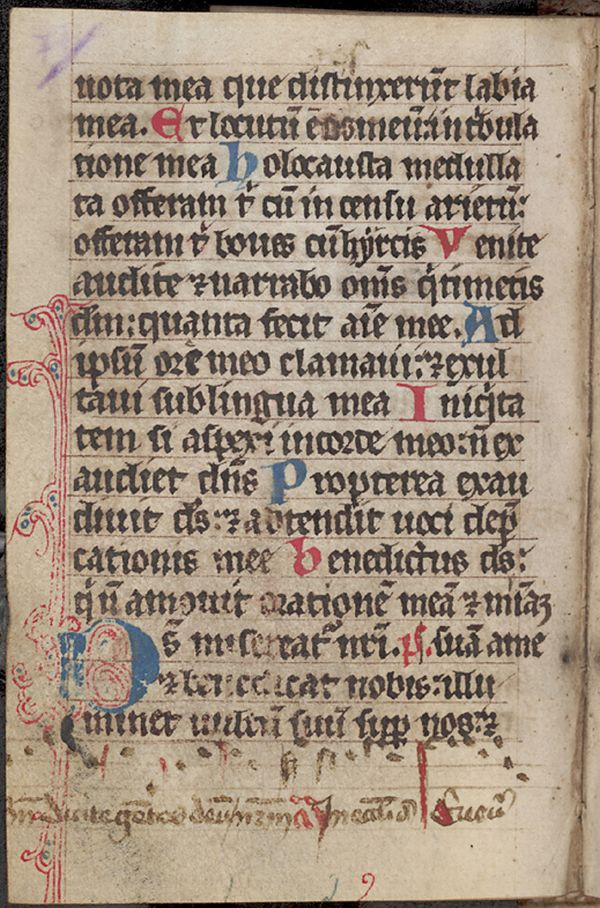 uota mea que distinxerūt labia
mea. Et locutū ē os meū: in tbula
tione mea holocausta medulla
ta offeram t' cū incensu arietū:
offeram t' boues cū hyrcis Venite
audite ⁊ narrabo om̄s q'timetis
dm̄: quanta fecit aīe mee. Ad
ipsū ore meo clamaui: ⁊ exul
taui sub lingua mea Iniq'ta
tem si aspexi in corde meo: n̄ ex
audiet dn̄s Propterea exau
diuit ds̄: ⁊ adtendit uoci dep̄
cationis mee benedictus ds̄:
q'ū amouit orationē meā ⁊ m̄iaꝫ
Ds̄ misereat' nr̄i. ps. suā a me
⁊ benedicat nobis: illu
minet uultū suū sup nos: ⁊